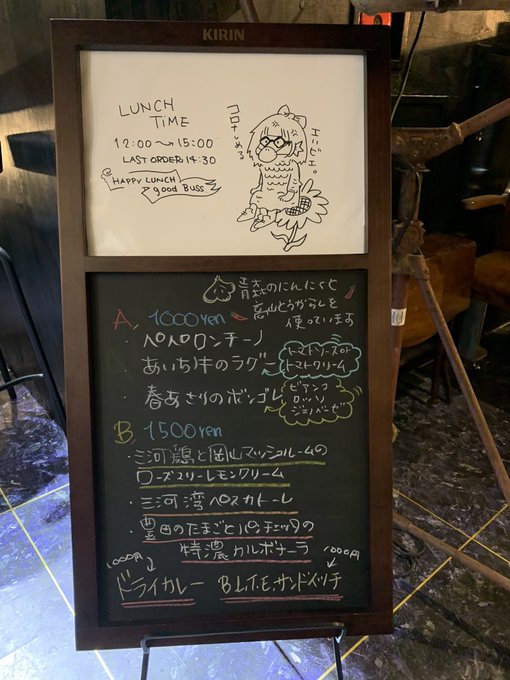 KIRIN
LUNCH
TIME
12:00〜15:00
LAST ORDER 14:30
HAPPY LUNCH
good BUSS
コロナしめろ
エいビエ。
青森のにんにくと
高山とうがらしを
使っています
A, 1000yen
・ペペロンチーノ
・あいち牛のラグー
トマトソースor
トマトクリーム
・春あさりのボンゴレ
ビアンコ
ロッソ
ジェノベーゼ
B 1500yen
・三河鶏と岡山マッシュルームの
ローズマリーレモンクリーム
・三河湾ペスカトーレ
・豊田のたまごとパンチェッタの
特濃カルボナーラ
1000円
ドライカレー
1000円
B.L.T.E.サンドイッチ